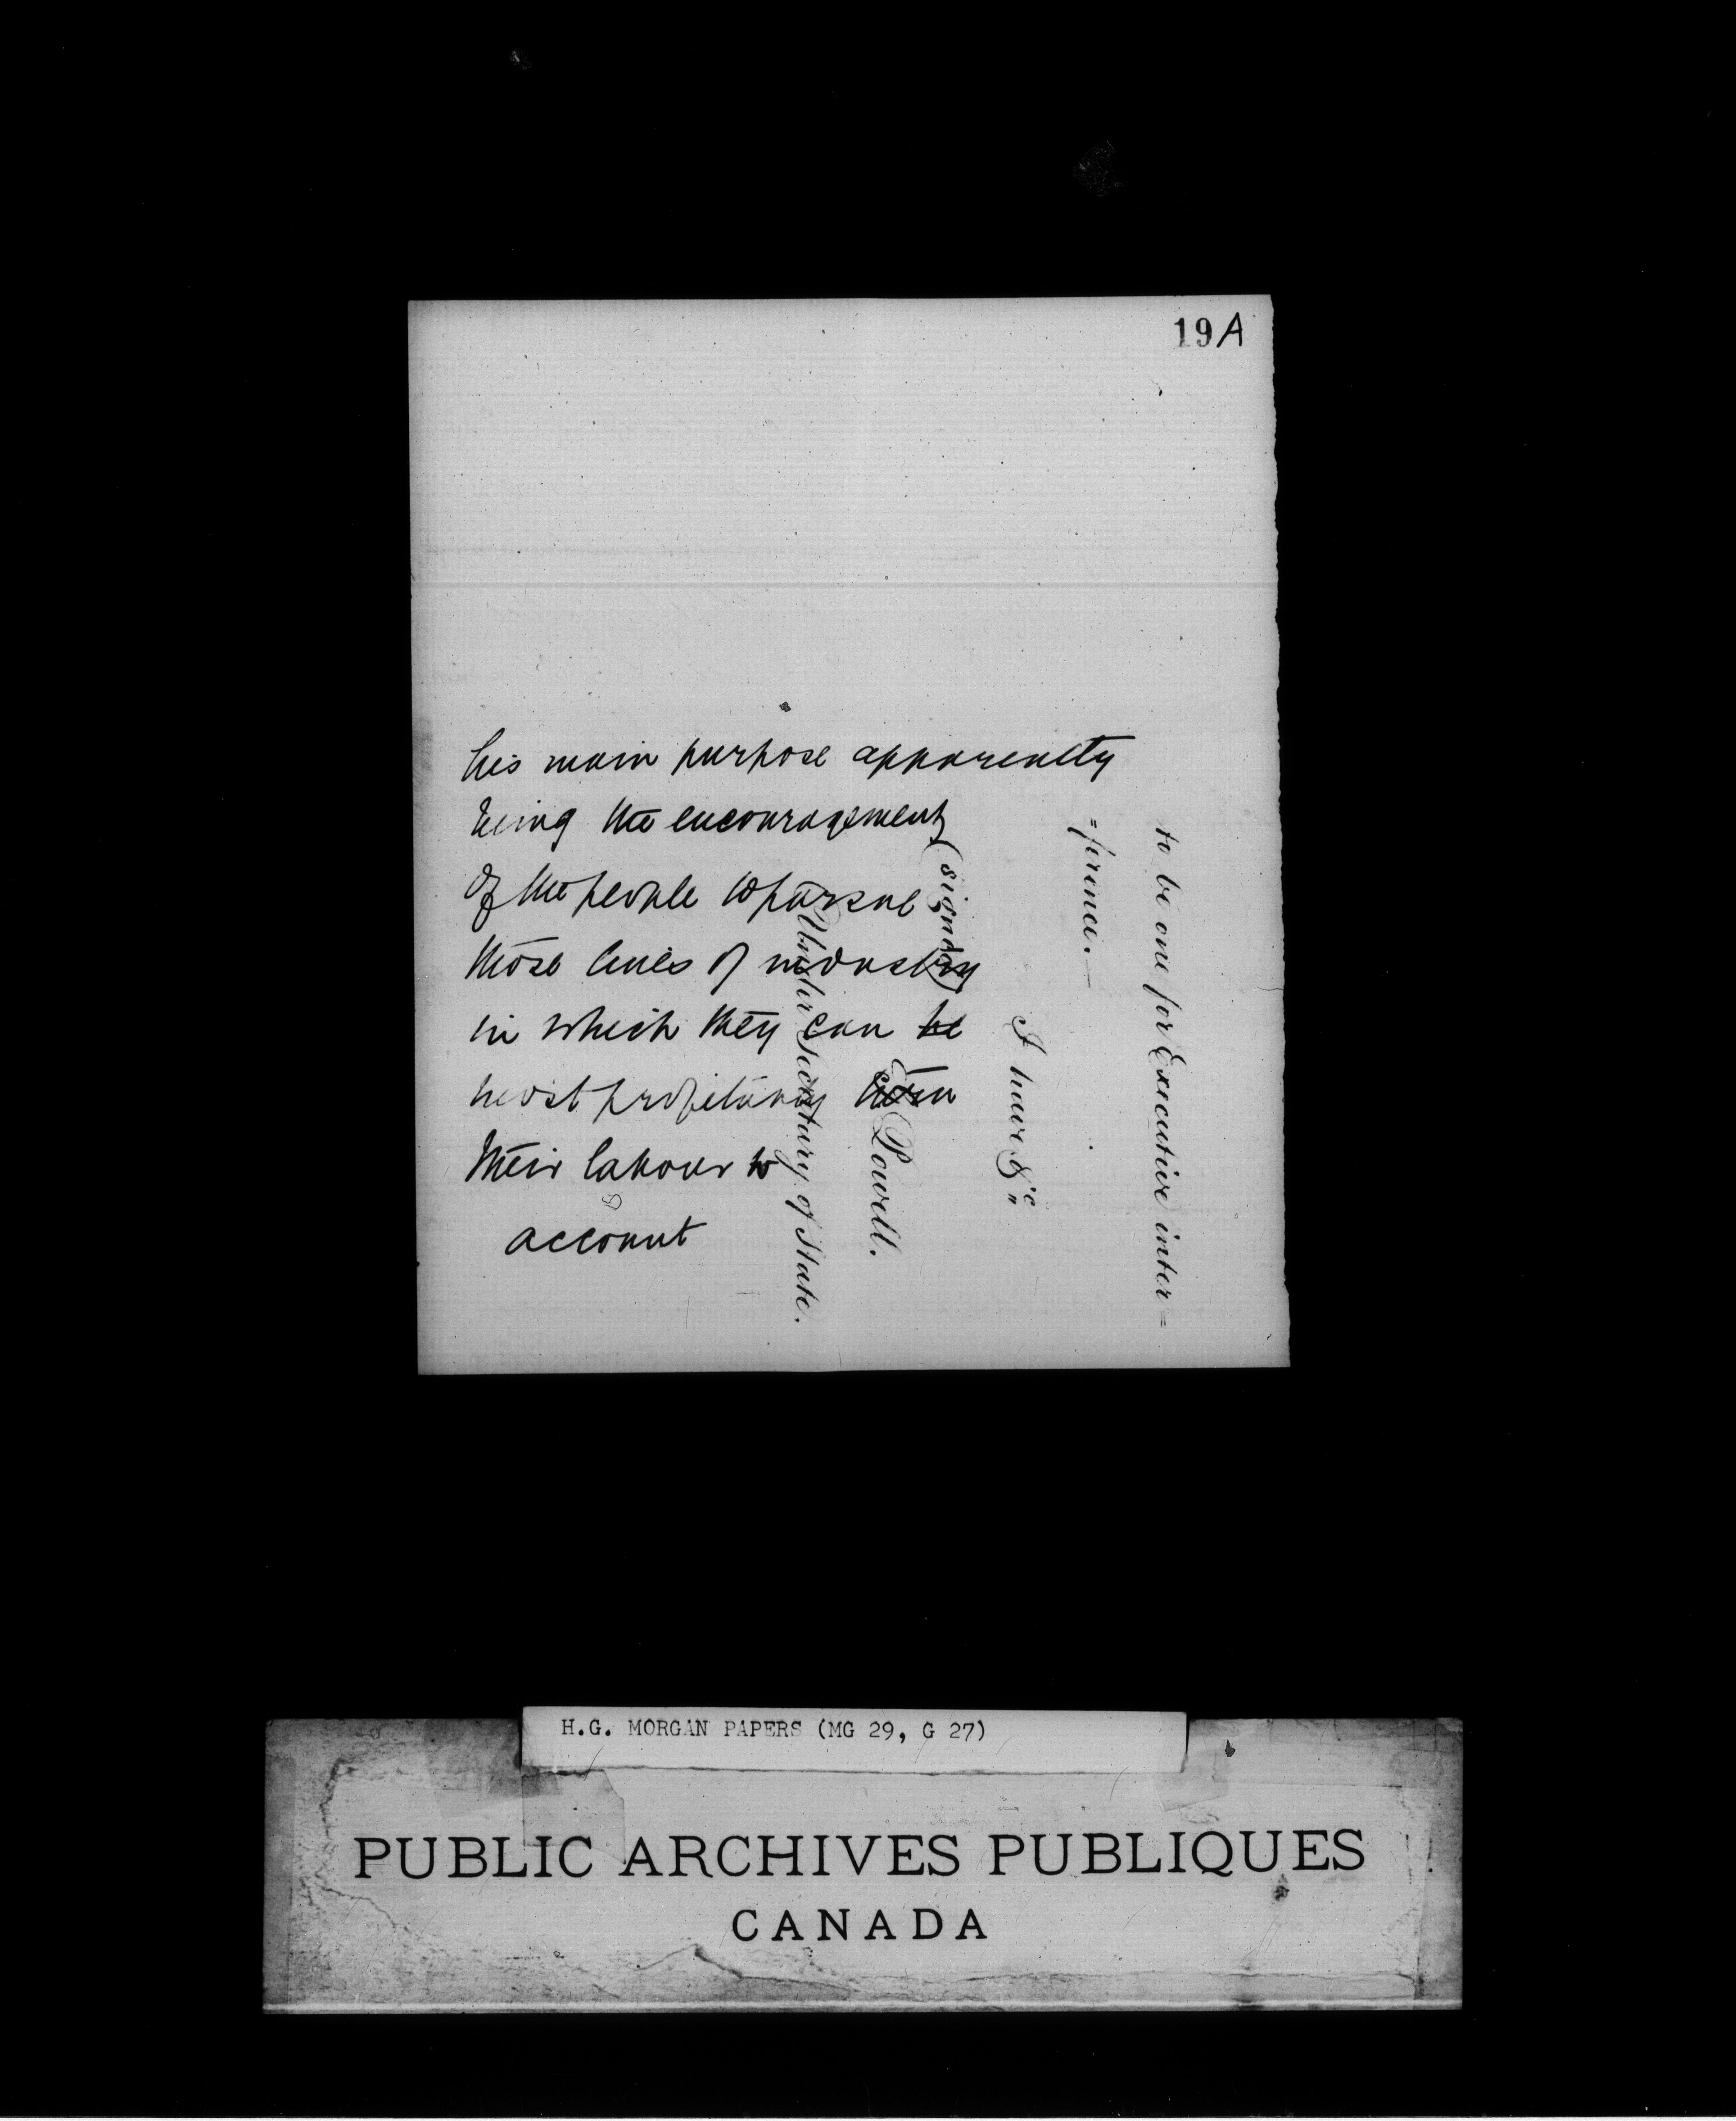 19A
his main purpose apparently
being the encouragement
of the people to pursue
those lines of industry
in which they can be
most profitably turn
their labour to
account
to be one for Executive inter=
=ference.—
I have &c
(signed)
Powell.
Under Secretary of State.
H.G. MORGAN PAPERS (MG 29, G 27)
PUBLIC ARCHIVES PUBLIQUES
CANADA